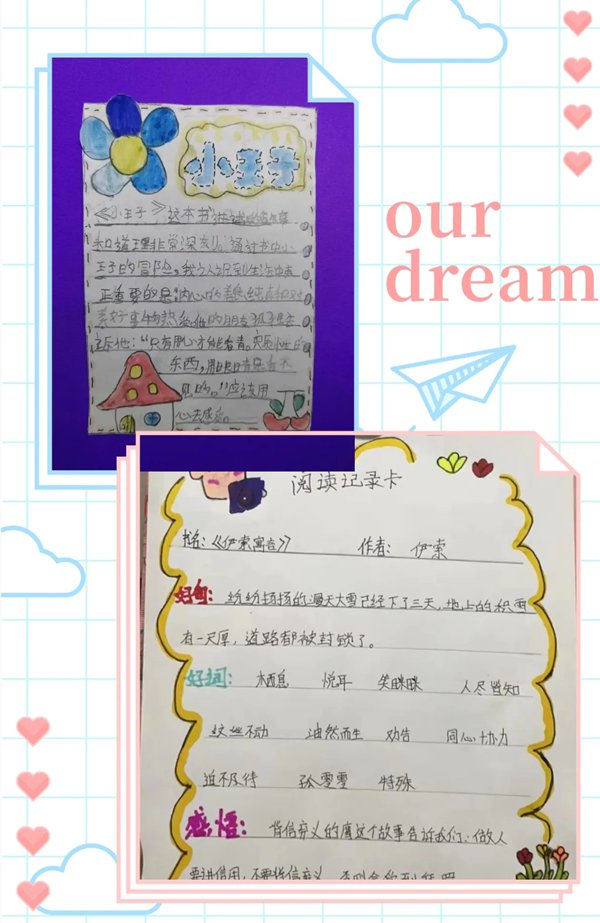 小王子
our
dream
《小王子》这本书讲述的故事
和道理非常深刻。通过书中小
王子的冒险，我认识到生活中真
正重要的是内心的善良、纯真和对
美好事物热爱。他的朋友狐狸告
诉他："只有用心才能看清。实质性的
东西，用眼睛是看不
见的。"应该用
心去感应。
阅读记录卡
书名：《伊索寓言》 作者：伊索
好句：纷纷扬扬的漫天大雪已经下了三天，地上的积雪
有一尺厚，道路都被封锁了。
好词：栖息 悦耳 笑眯眯 人尽皆知
纹丝不动 油然而生 劝告 同心协力
迫不及待 孤零零 特殊
感悟：背信弃义的鹰这个故事告诉我们：做人
要讲信用，不要背信弃义，否则会